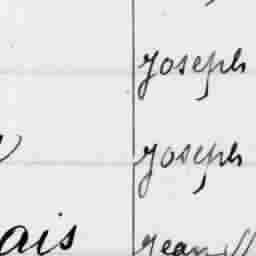 Joseph
Joseph
ais Jean